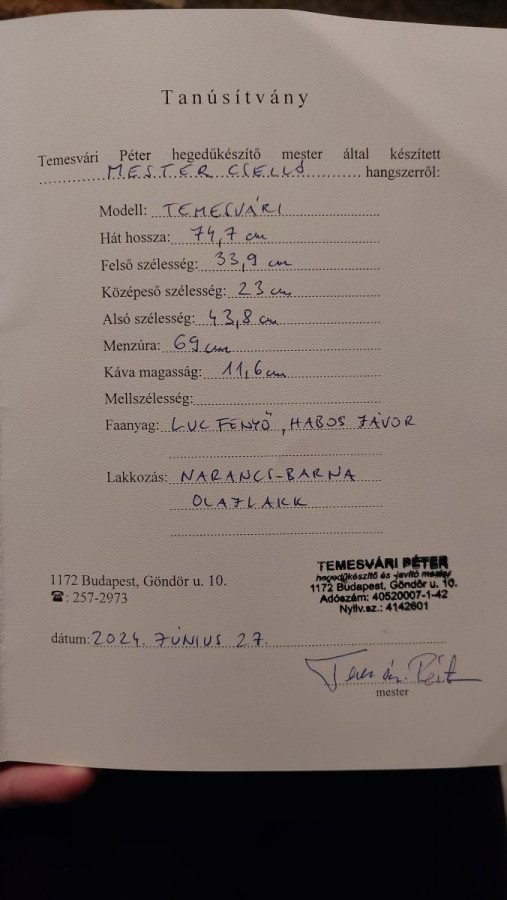 Tanúsítvány
Temesvári Péter hegedűkészítő mester által készített
MESTER CSELLÓ hangszerről:
Modell: TEMESVÁRI
Hát hossza: 74,7 cm
Felső szélesség: 33,9 cm
Középeső szélesség: 23 cm
Alsó szélesség: 43,8 cm
Menzúra: 69 cm
Káva magasság: 11,6 cm
Mellszélesség:
Faanyag: LUCFENYŐ, HABOS JÁVOR
Lakkozás: NARANCS-BARNA
OLAJLAKK
1172 Budapest, Göndör u. 10.
☎: 257-2973
TEMESVÁRI PÉTER
hegedűkészítő és -javító mester
1172 Budapest, Göndör u. 10.
Adószám: 40520007-1-42
Nyilv.sz.: 4142601
dátum: 2024. JÚNIUS 27.
Temesvári Péter
mester